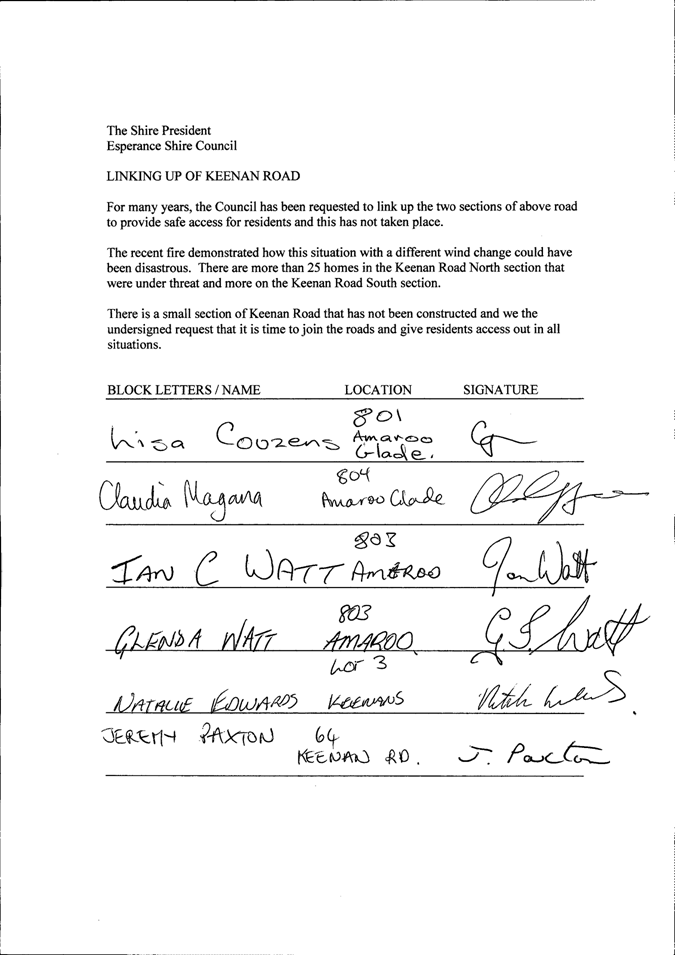 The Shire President
Esperance Shire Council
LINKING UP OF KEENAN ROAD
For many years, the Council has been requested to link up the two sections of above road
to provide safe access for residents and this has not taken place.
The recent fire demonstrated how this situation with a different wind change could have
been disastrous. There are more than 25 homes in the Keenan Road North section that
were under threat and more on the Keenan Road South section.
There is a small section of Keenan Road that has not been constructed and we the
undersigned request that it is time to join the roads and give residents access out in all
situations.
BLOCK LETTERS / NAME LOCATION SIGNATURE
801
Lisa Couzens Amaroo
Glade.
804
Claudia Magana Amaroo Glade
803
IAN C WATT AMAROO Ian Watt
803
GLENDA WATT AMAROO G S Watt
LOT 3
NATALIE EDWARDS KEENANS
JEREMY PAXTON 64
KEENAN RD. J. Paxton